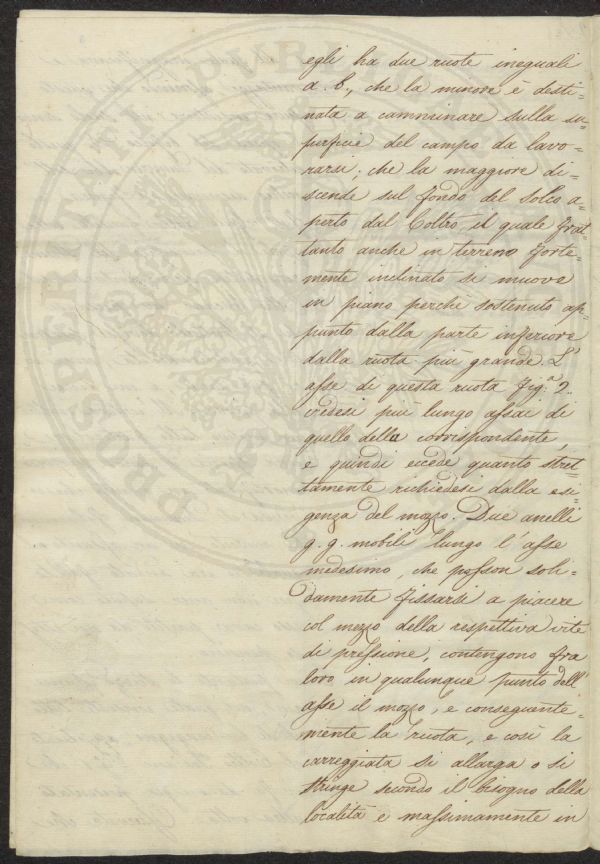 egli ha due ruote ineguali
a. b., che la minore è desti=
nata a camminare sulla su=
perficie del campo da lavo=
rarsi; che la maggiore di=
scende sul fondo del solco a=
perto dal Coltro, il quale frat=
tanto anche in terreno forte=
mente inclinato si muove
in piano perchè sostenuto ap=
punto dalla parte inferiore
dalla ruota più grande. L'
asse di questa ruota fig.ª 2..
vedesi più lungo assai di
quello della corrispondente,
e quindi eccede quanto stret=
tamente richiedesi dalla esi=
genza del mozzo. Due anelli
g. g. mobili lungo l'asse
medesimo, che posson soli=
damente fissarsi a piacere
col mezzo della respettiva vite
di pressione, contengono fra
loro in qualunque punto dell'
asse il mozzo, e conseguente=
mente la ruota, e così la
carreggiata si allarga o si
stringe secondo il bisogno della
località e massimamente in
PROSPERITATI PUBLICAE